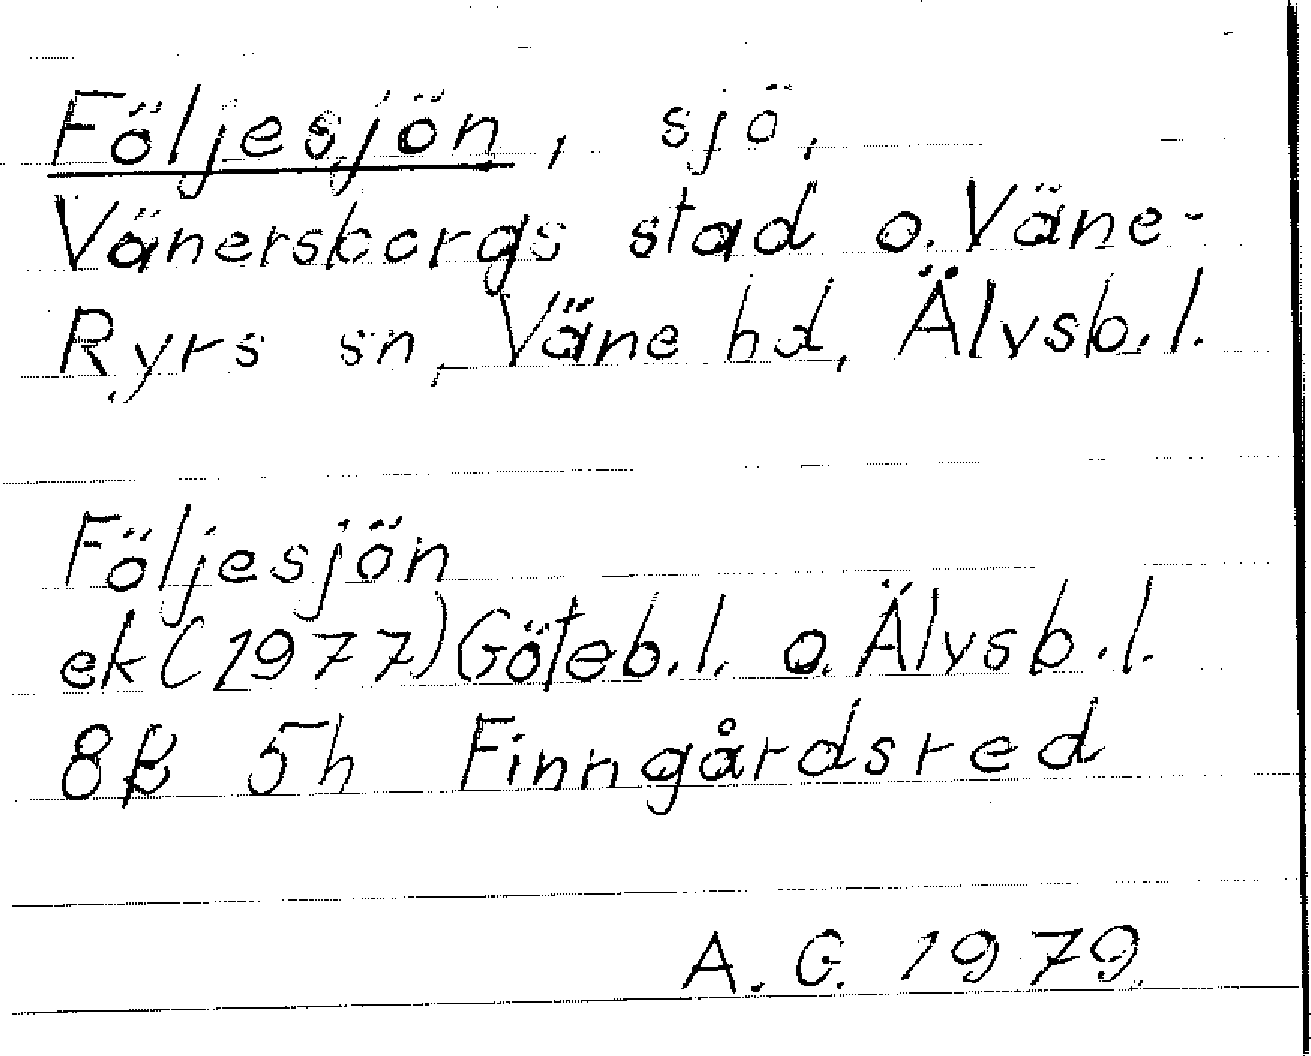 Följesjön, sjö,
Vänersborgs stad o. Väne-
Ryrs sn, Väne hd, Älvsb.l.
Följesjön
ek (1977) Göteb.l. o. Älvsb.l.
8B 5h Finngårdsred
A. G. 1979.